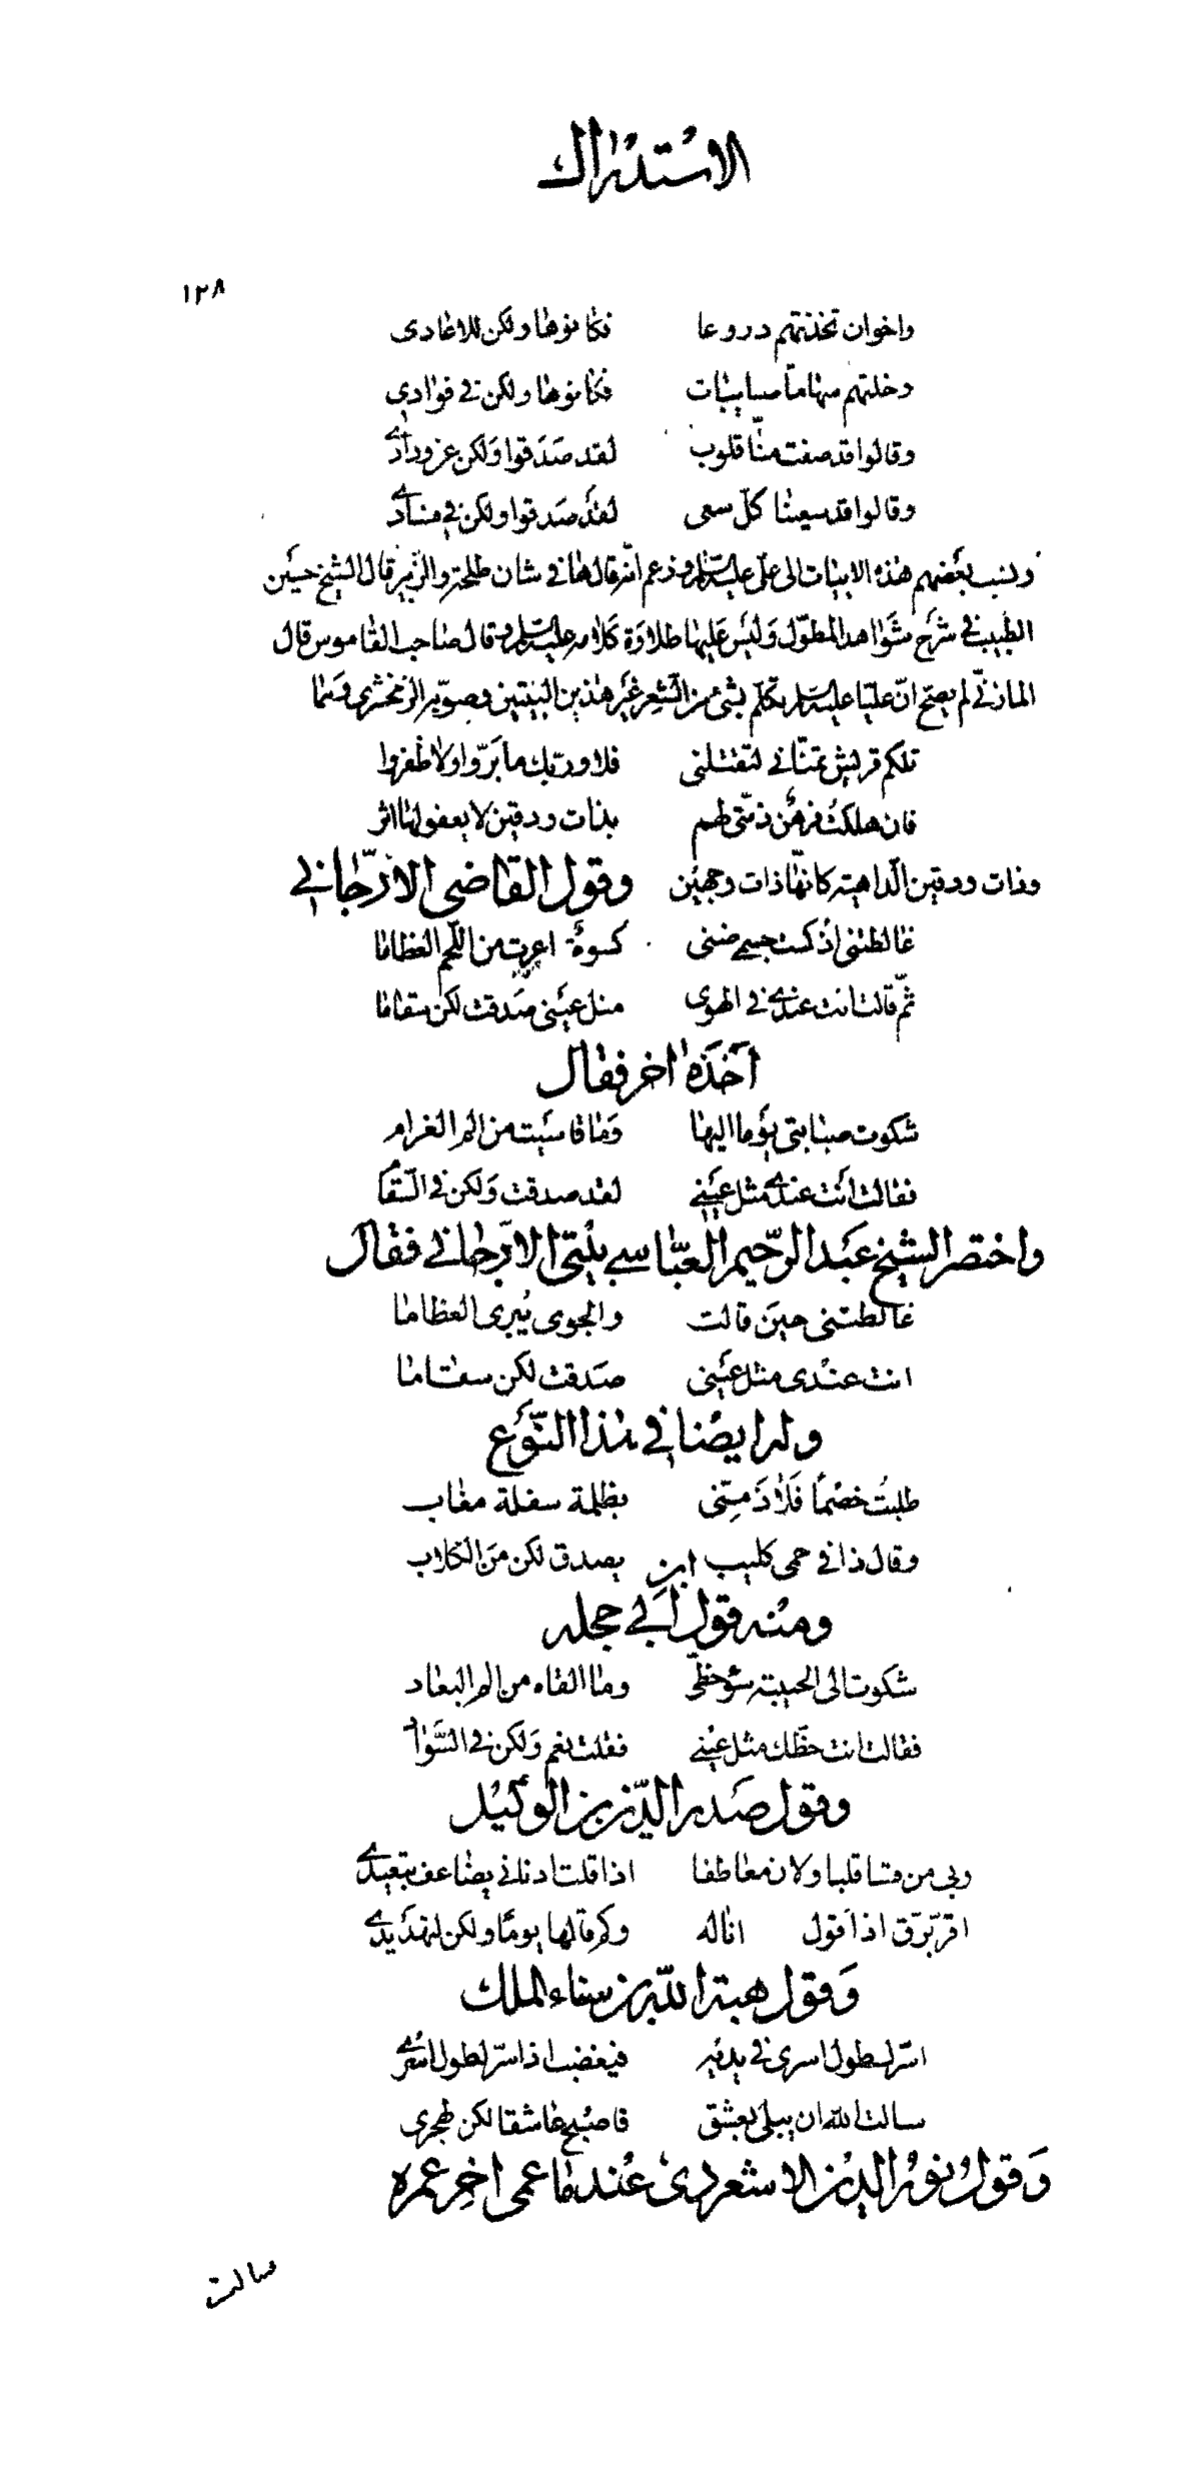 الاستدراك
١٢٨
واخوان تخذتهم دروعا فكانوها ولكن للاعادى
وخلتهم سهاما صايبات فكانوها ولكن فى فؤادى
وقالوا قد صفت منّا قلوب لقد صَدَقوا وَلكن عن ودادى
وقالوا قد سعينا كلّ سعى لقد صدقوا ولكن فى فسادى
ونسب بعضهم هذه الابيات الى علىّ عليه السّلم وزعم انّه قالها فى شان طلحة والزبير قال الشيخ حسين
الطبيب فى شرح شَوٰاهد المطوّل وَليس عَليها طلاوَة كلامه عليه السّلم وقال صاحب القاموس قال
المازنّى لم يصحّ انّ عليّا عليه السّلم تكلّم بشئ من الشّعر غير هٰذين البيتين وصوّبه الزمخشرى وَهما
تلكم قريش تمنّانى لتقتلنى فلا وربّك ما بَرّوا ولا ظفروا
فان هلكتُ فرهنٌ ذمّتى لهم بذات ودقين لا يعفو لها اثر
وذات ودقين الدّاهية كانهّا ذات وجهين وقول القاضى الارّجانى
غالطتنى اذ كست جسمى ضنى كسوةً اعرت من اللّحم العظاما
ثمّ قالت انت عندى فى الهوى مثل عينى صَدقت لكن سقاما
أخذَهُ اخر فقال
شكوت صبابتى يَوما اليها وَما قاسَيت من الم الغرام
فقالت انت عندى مثل عَينى لقد صدقت وَلكن فى السّقام
واختصر الشيخ عَبد الرحّيم العبّاسى بيتى الارّجانى فقال
غالطتنى حينَ قالت والجوى يُبرى العظاما
انت عندى مثل عَينى صَدقت لكن سقاما
وله ايضا فى هذا النّوَع
طلبتُ خصْما فَلاذَ مِنّى بظلمة سفلة مغاب
وقال ذا فى حمى كليب يصدق لكن منَ الكلاب
ومنه قول ابن أبى حجله
شكوت الى الحبيبة سُوء حظّى وما القاه من الم البعاد
فقالت انت حظّك مثل عينى فقلت نعم وَلكن فى السَّوٰاد
وقول صَدر الدّين بن الوكيل
وبى من قسا قلبا ولان معاطفا اذا قلت ادنانى يضاعف تبعيدى
اقرّ برّق اذ اَقول انا له وكم قالها يومًا ولكن لتهديدى
وَقول هبة اللّه بن سناء الملك
اسرّ لطول اسرى فى يديه فيغضب اذ اسرّ لطول اسرى
سالت اللّه ان يبلى بعشق فاصْبح عاشقا لكن لهجرى
وَقول نور الدين الاسعردىّ عند ما عمى اخر عمره
سالت